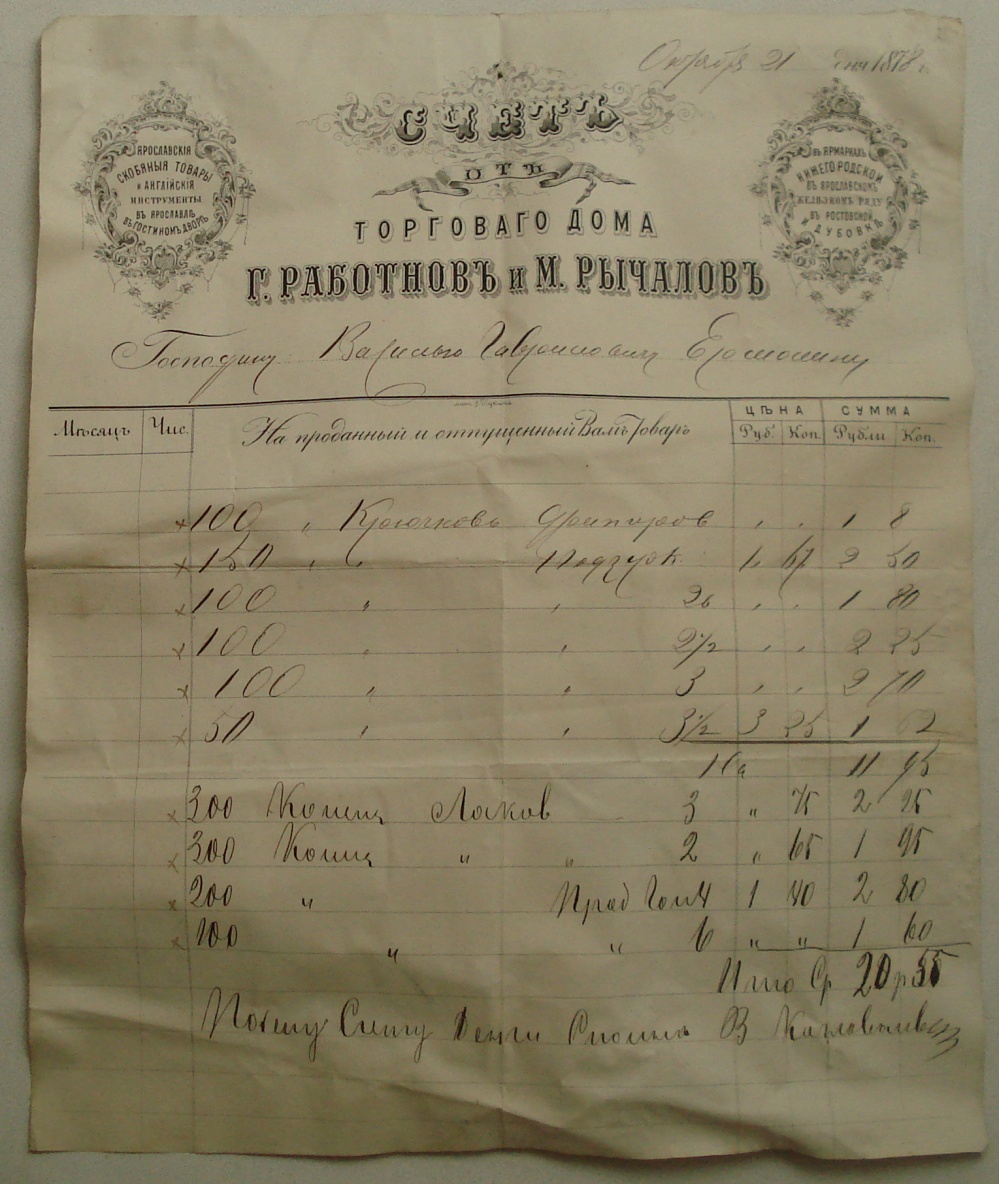 Октября 21 дня 1878 г.
СЧЕТЪ
ОТЪ
ТОРГОВАГО ДОМА
Г. РАБОТНОВЪ и М. РЫЧАЛОВЪ
ЯРОСЛАВСКІЯ
СКОБЯНЫЯ ТОВАРЫ
и АНГЛІЙСКІЯ
ИНСТРУМЕНТЫ
ВЪ ЯРОСЛАВЛѢ
ВЪ ГОСТИНОМЪ ДВОРѢ
ВЪ ЯРМАРКАХЪ
НИЖЕГОРОДСКОЙ
ВЪ ЯРОСЛАВСКОМЪ
ЖЕЛѢЗНОМЪ РЯДУ
ВЪ РОСТОВСКОЙ
ДУБОВКѢ
Господину Василью Гавриловичу
Мѣсяцъ Чис. На проданный и отпущенный Вамъ Товаръ ЦѢНА СУММА
Руб. Коп. Рубли Коп.
100 " Крючковъ " " 1 8
150 " " 1 67 2 50
100 " " " " 1 80
100 " " 2 1/2 " " 2 25
100 " " 3 " " 2 70
50 " " 3 1/2 3 25 1 62
11 95
300 3 " 75 2 25
300 " " 2 " 65 1 95
200 " 4 1 40 2 80
100 " " 6 " " 1 60
Итого Ср 20 р 55
Почему Деньги